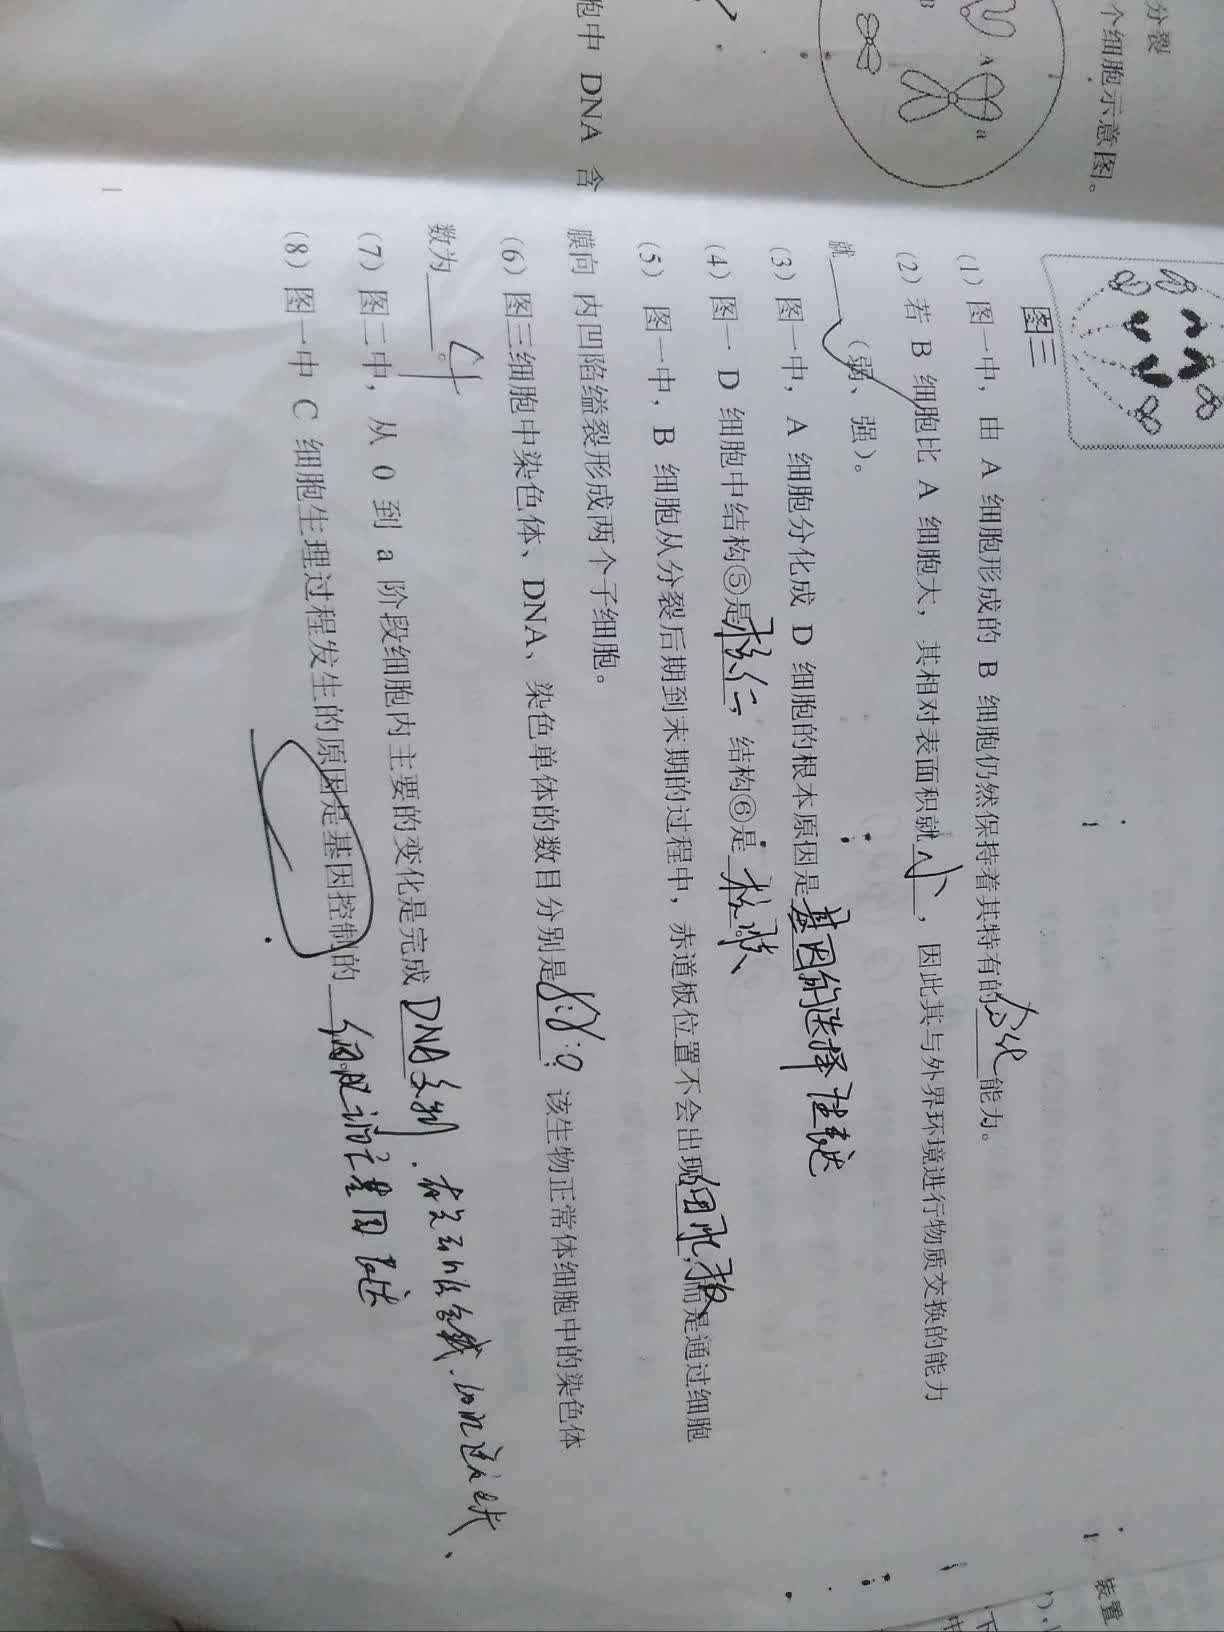 分裂
个细胞示意图。
B
A
a
胞中 DNA 含
图三
(1) 图一中，由 A 细胞形成的 B 细胞仍然保持着其特有的分化能力。
(2) 若 B 细胞比 A 细胞大，其相对表面积就小，因此其与外界环境进行物质交换的能力
就（弱、强）。
(3) 图一中，A 细胞分化成 D 细胞的根本原因是基因的选择性表达
(4) 图一 D 细胞中结构⑤是核仁，结构⑥是核膜
(5) 图一中，B 细胞从分裂后期到末期的过程中，赤道板位置不会出现细胞板，而是通过细胞
膜向 内凹陷缢裂形成两个子细胞。
(6) 图三细胞中染色体、DNA、染色单体的数目分别是8:8:0；该生物正常体细胞中的染色体
数为4。
(7) 图二中，从 0 到 a 阶段细胞内主要的变化是完成DNA复制、
(8) 图一中 C 细胞生理过程发生的原因是基因控制的
装置
下